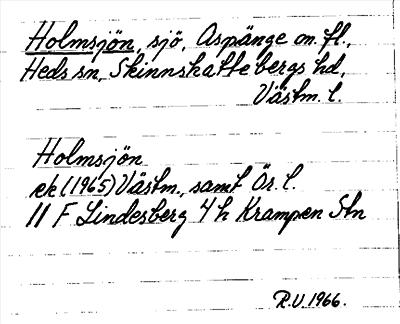 Holmsjön, sjö, Aspänge m. fl.,
Heds sn, Skinnskattebergs hd,
Västm. l.
Holmsjön
ek (1965) Västm., samt Ör. l.
11 F Lindesberg 4 h Krampen Stn
R.U. 1966.